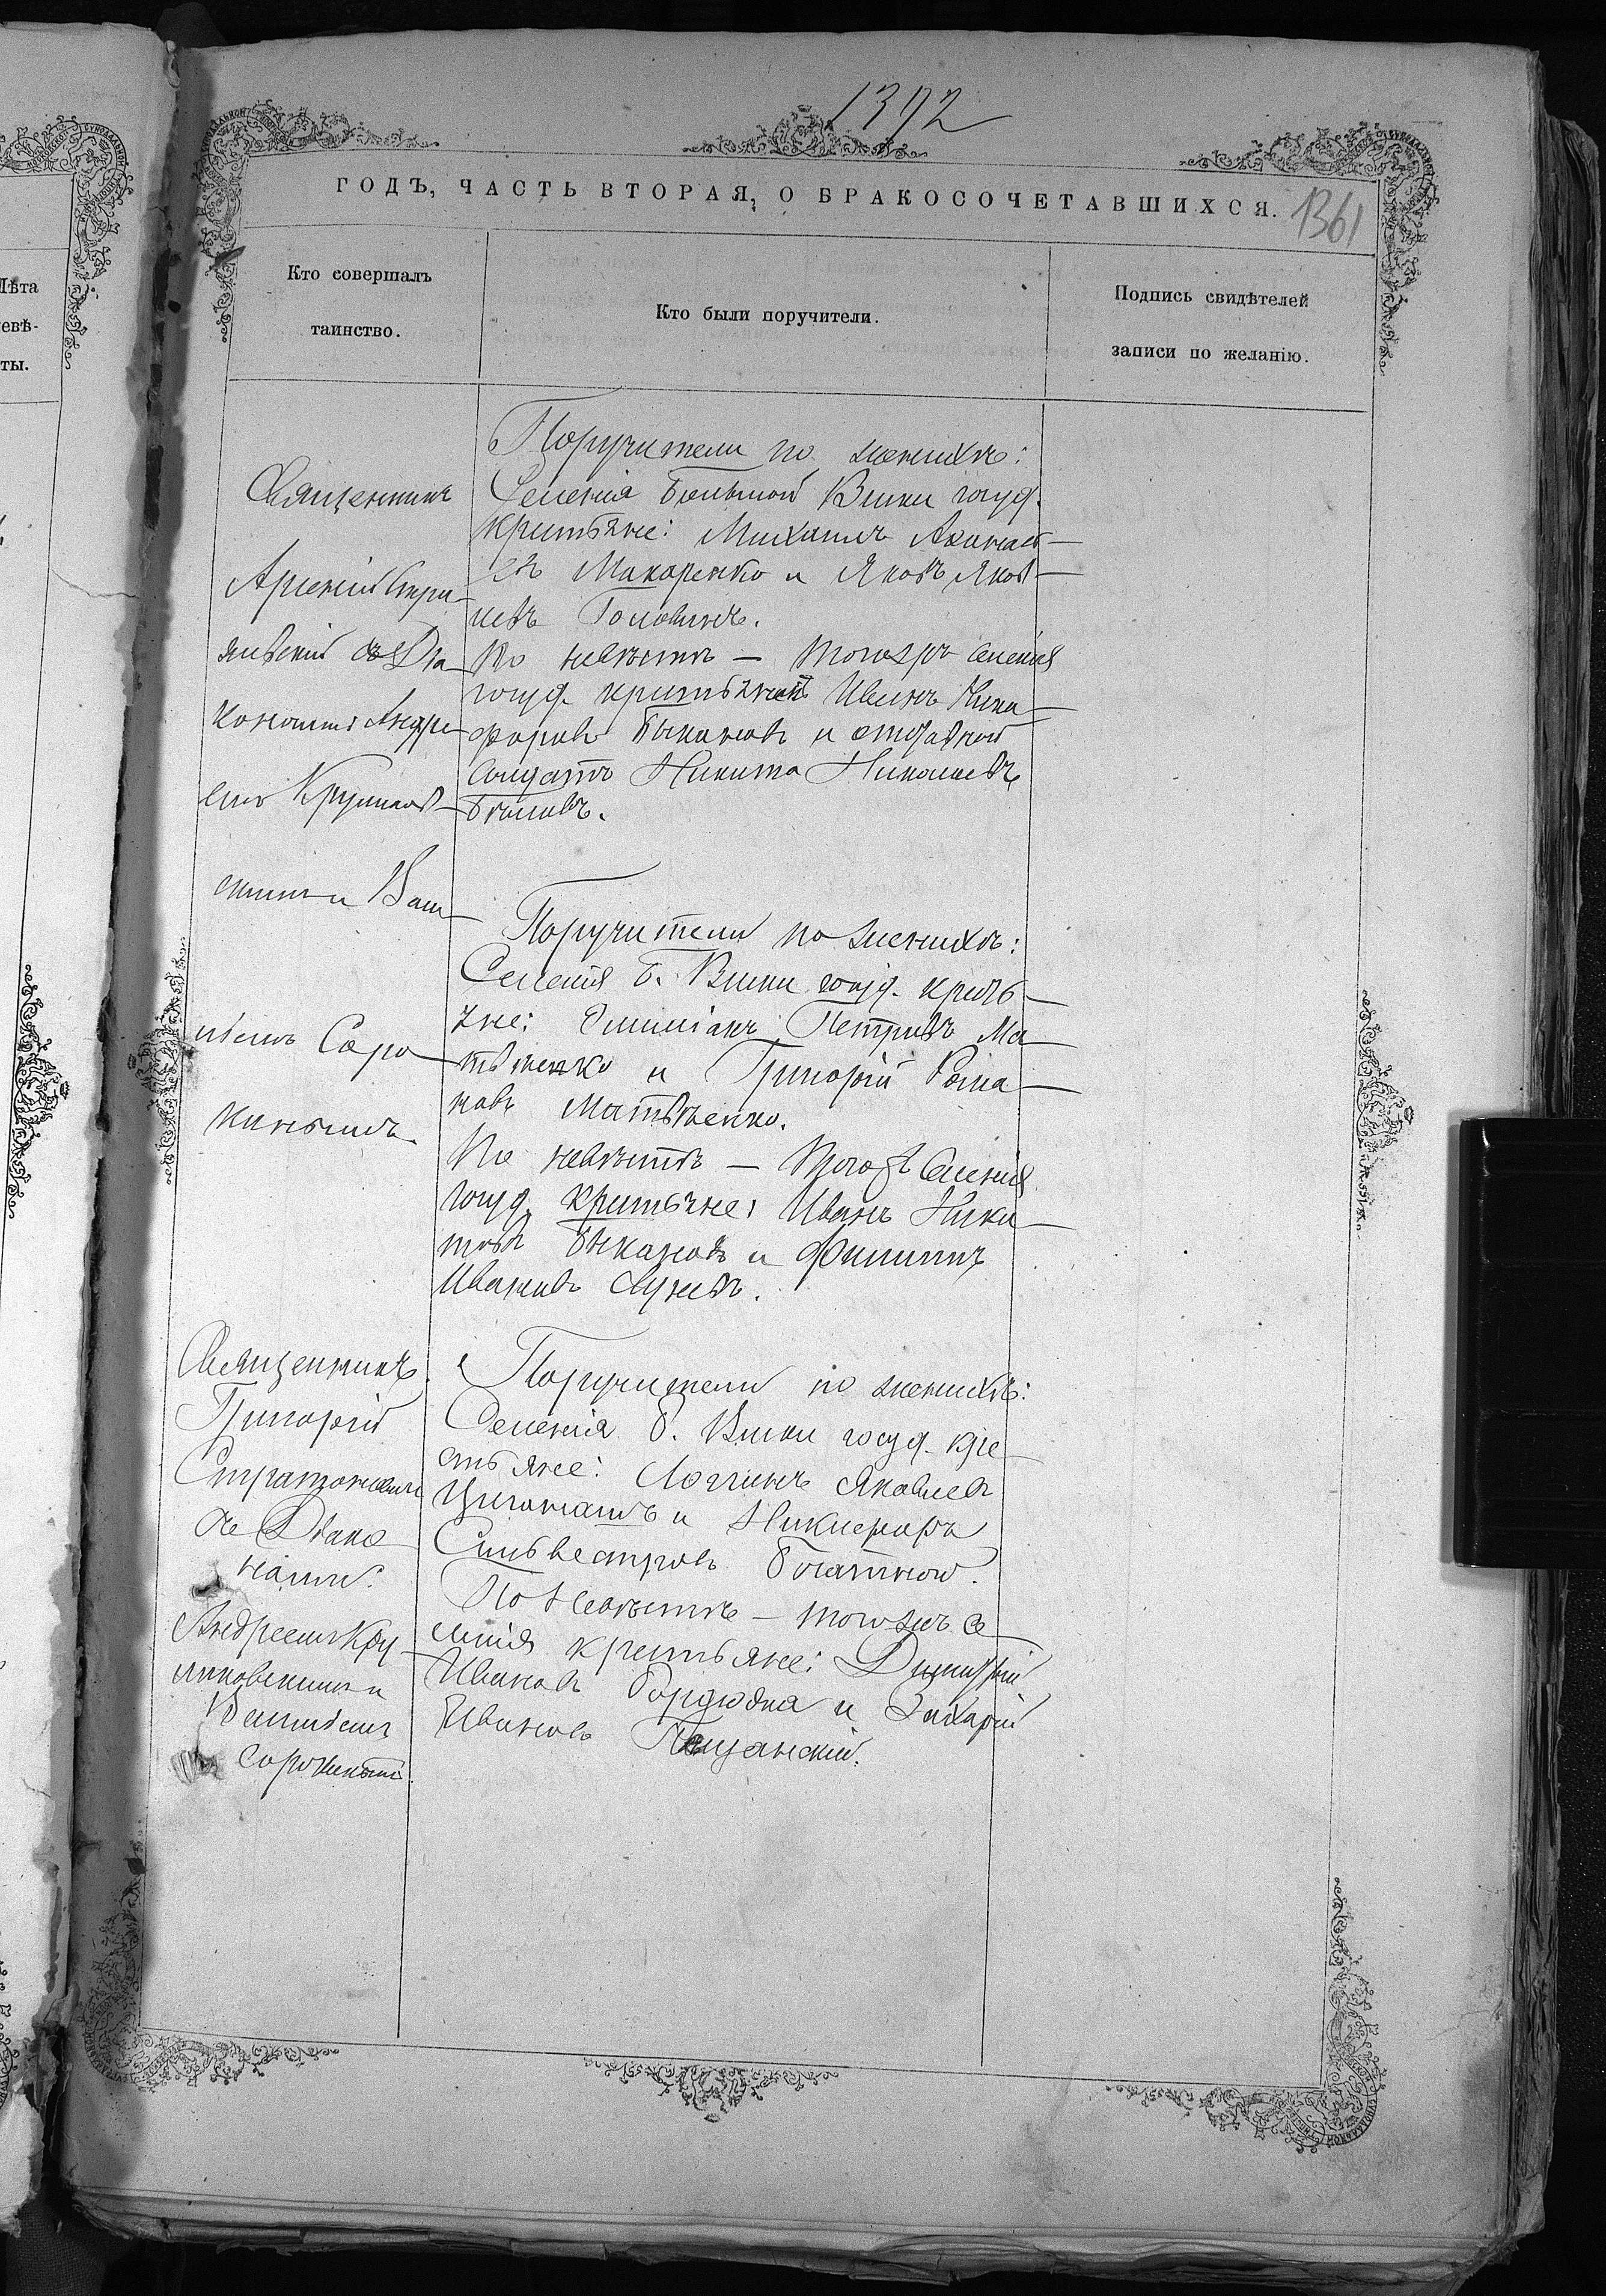 1392
ГОДЪ, ЧАСТЬ ВТОРАЯ, О БРАКОСОЧЕТАВШИХСЯ.
1361
Лѣта
евѣ-
ты.
Кто совершалъ
таинство.
Кто были поручители.
Подпись свидѣтелей
записи по желанію.
Священникъ
Арсеній
съ Діа-
кономъ: Андре-
емъ
и Васи-
Соро-
кинымъ.
Поручители по женихѣ:
Селенія Большой Виски госуд.
крестьяне: Михаилъ Аѳанась-
евъ Макаренко и Яковъ Яков-
левъ Головинъ.
По невѣстѣ — тогожъ селенія
госуд. крестьянинъ Иванъ Ники-
форовъ и отставной
солдатъ Никита Николаевъ
Поручители по женихѣ:
Селенія Б. Виски госуд. кресть-
яне: Петровъ Ма-
твѣенко и Григорій Рома-
новъ Матвѣенко.
По невѣстѣ — тогожъ селенія
госуд. крестьяне: Иванъ Ники-
товъ и Филиппъ
Ивановъ
Священникъ
Григорій
Стратоновичъ
съ Діако-
нами:
Андреемъ Кру-
и
Василіемъ
Сорокинымъ.
Поручители по женихѣ:
Селенія Б. Виски госуд. кре-
стьяне: Логгинъ Яковлевъ
и Никифоръ
Сильвестровъ
По невѣстѣ — тогожъ се-
ленія крестьяне: Димитрій
Ивановъ и Захарій
Ивановъ Пещанскій.